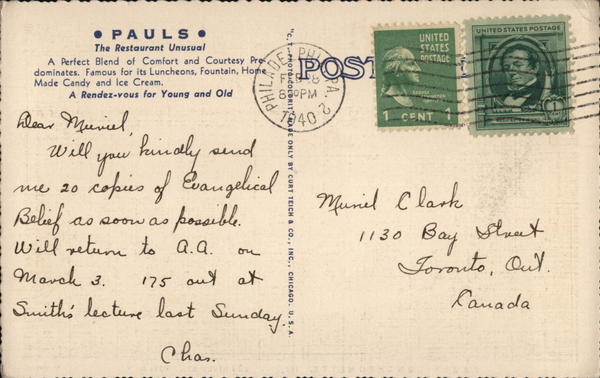 • PAULS •
The Restaurant Unusual
A Perfect Blend of Comfort and Courtesy Pre-
dominates. Famous for its Luncheons, Fountain, Home
Made Candy and Ice Cream.
A Rendez-vous for Young and Old
Dear Muriel,
Will you kindly send
me 20 copies of Evangelical
Belief as soon as possible.
Will return to A.A. on
March 3. 175 out at
Smith's lecture last Sunday.
Chas.
"C.T. PHOTO-COLORIT" MADE ONLY BY CURT TEICH & CO., INC., CHICAGO, U.S.A.
POST
PHILADELPHIA, PA. 2
FEB
8 30 PM
1940
UNITED
STATES
POSTAGE
1 CENT 1
UNITED STATES POSTAGE
1
Muriel Clark
1130 Bay Street
Toronto, Ont.
Canada